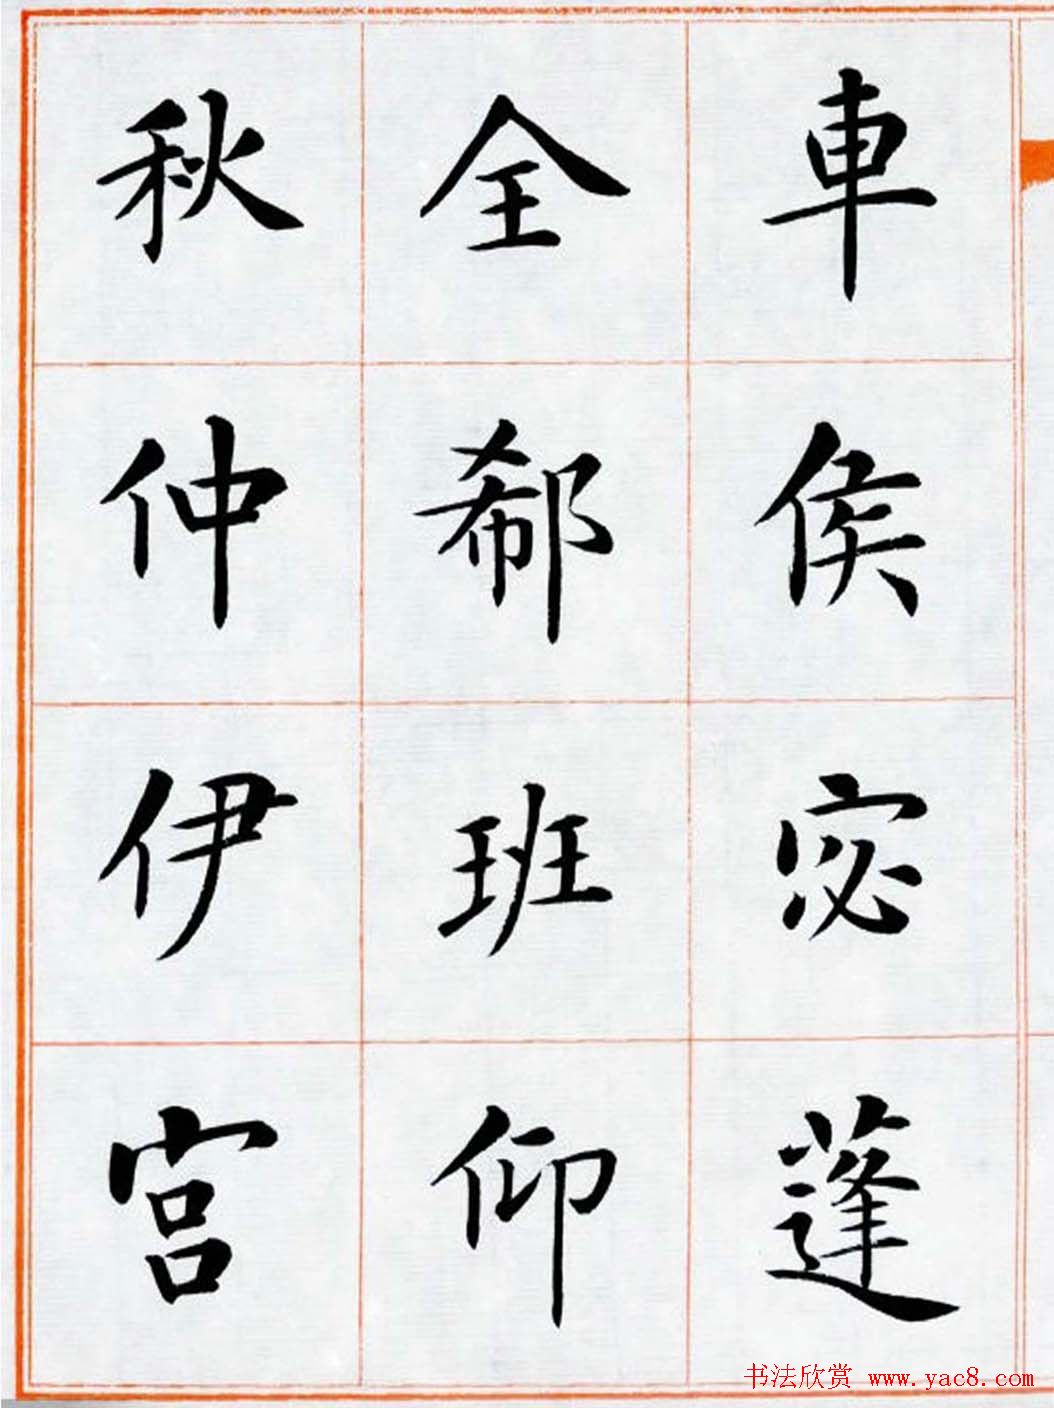 車侯宓蓬
全郗班仰
秋仲伊宫
书法欣赏 www.yac8.com